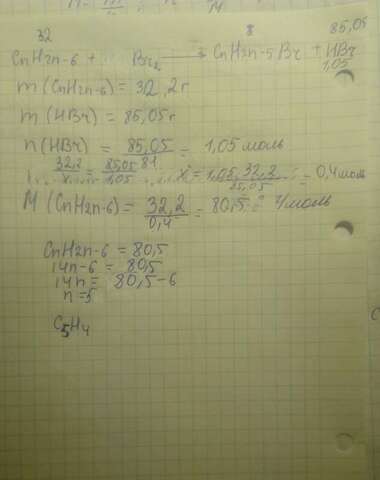 32 8 85,05
CnH2n-6 + Br2 → CnH2n-5Br + HBr
1,05
m (CnH2n-6) = 32,2г
m (HBr) = 85,05г
n (HBr) = 85,05 / 81 = 1,05 моль
32,2 / x = 85,05 / 1,05 x = 1,05 · 32,2 / 85,05 = 0,4 моль
M (CnH2n-6) = 32,2 / 0,4 = 80,5 г/моль
CnH2n-6 = 80,5
14n-6 = 80,5
14n = 80,5-6
n = 5
C5H4